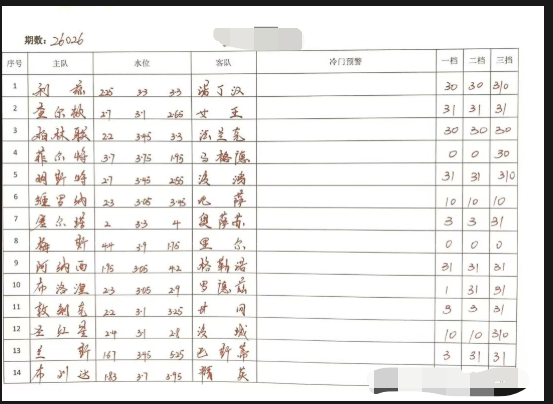 期数: 26026
序号 主队 水位 客队 冷门预警 一档 二档 三档
1 利兹 2.25 3.3 3.3 诺丁汉 30 30 310
2 查尔顿 2.7 3.1 2.65 女王 31 31 31
3 柏林联 2.2 3.45 3.3 法兰克 30 30 30
4 菲尔特 3.7 3.75 1.95 马格德 0 0 30
5 明斯特 2.7 3.45 2.55 波鸿 31 31 310
6 维罗纳 2.3 3.05 3.45 比萨 10 10 10
7 塞尔塔 2 3.3 4 奥萨苏 3 3 31
8 梅斯 4.4 3.9 1.75 里尔 0 0 0
9 阿纳西 1.95 3.05 4.2 格勒诺 31 31 31
10 布洛涅 2.3 3.05 2.9 罗德兹 1 31 31
11 敦刻克 2.2 3.1 3.25 甘冈 3 3 31
12 圣红星 2.4 3.1 2.8 波城 10 10 310
13 兰斯 1.67 3.45 5.25 巴斯蒂 3 31 31
14 布列达 1.83 3.7 3.95 精英